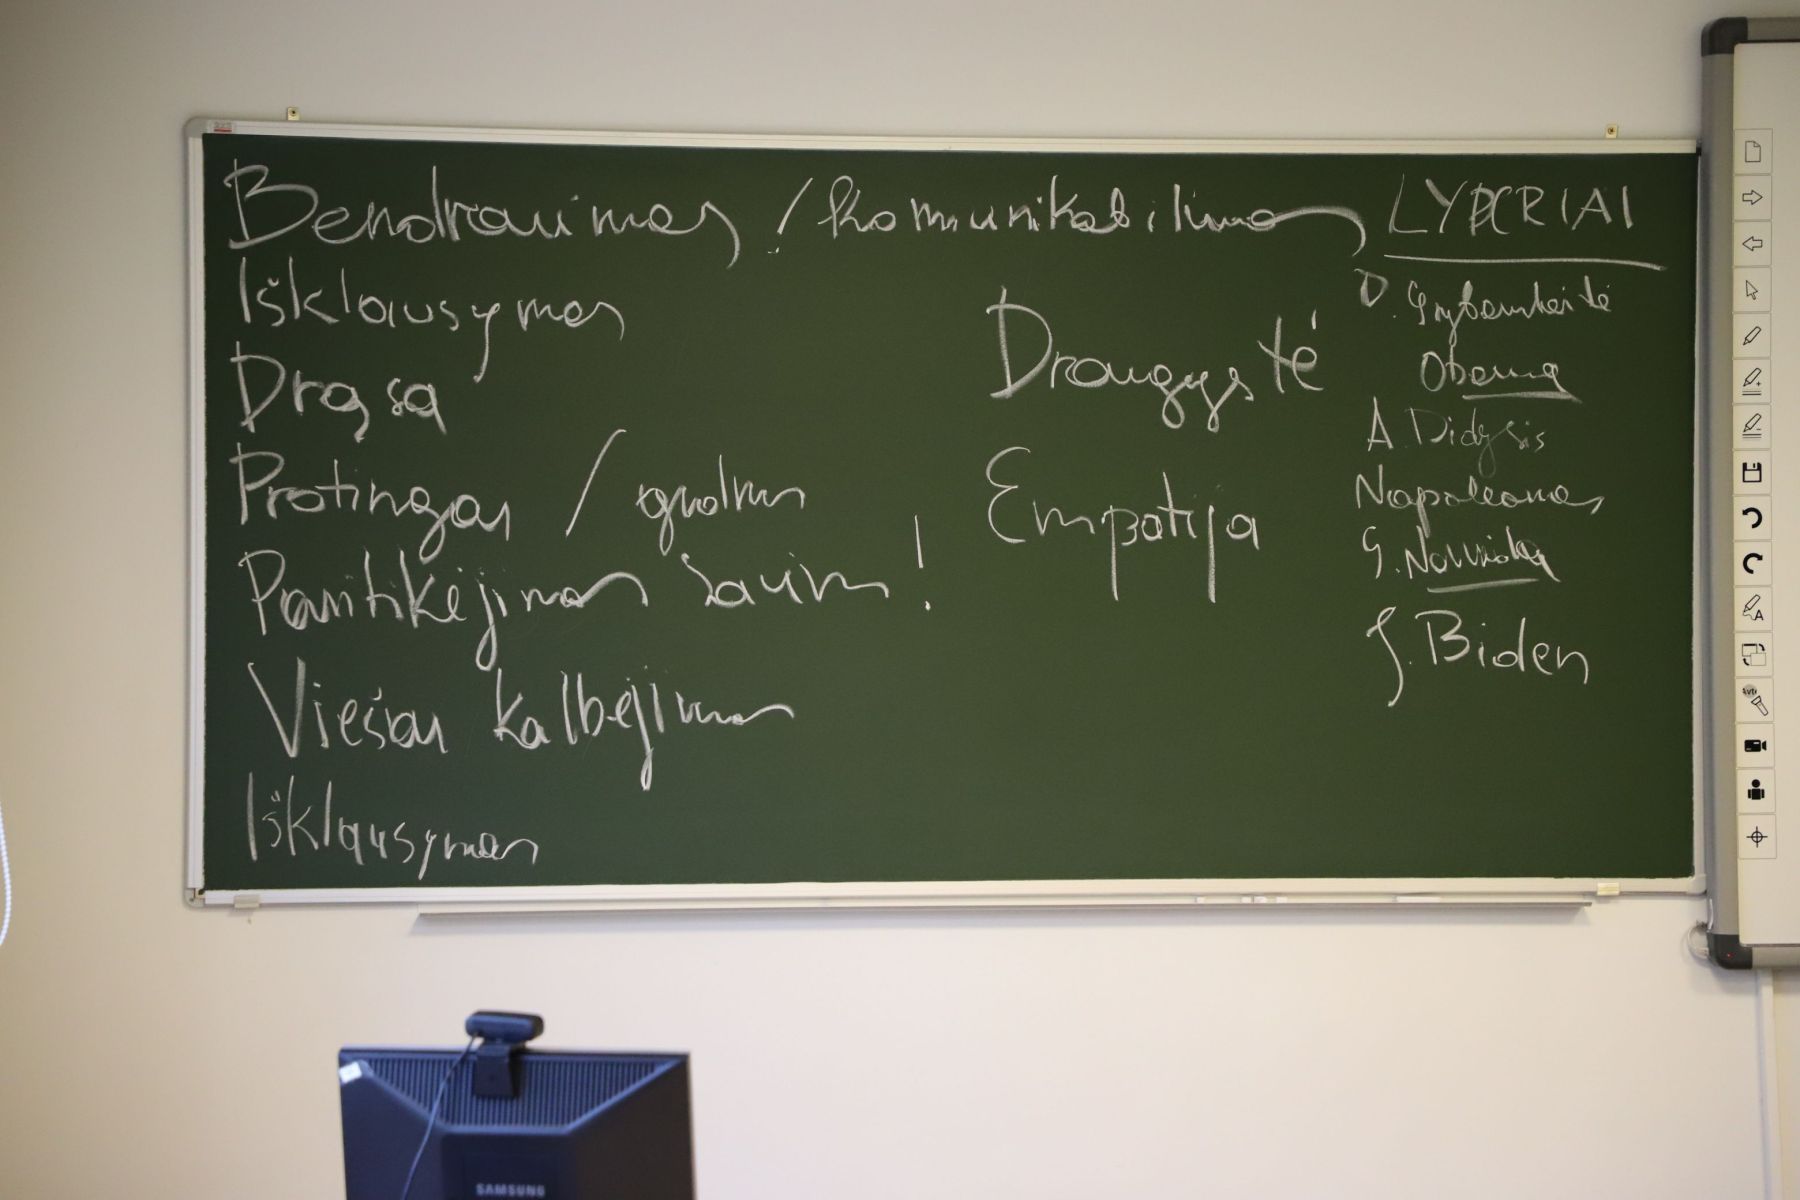 Bendravimas / komunikabilumas
Išklausymas
Drąsa
Protingas / gudrus
Pasitikėjimas savim !
Viešas kalbėjimas
Išklausymas
Draugystė
Empatija
LYDERIAI
D. Grybauskaitė
Obama
A. Didysis
Napoleonas
G. Nausėda
J. Biden
SAMSUNG